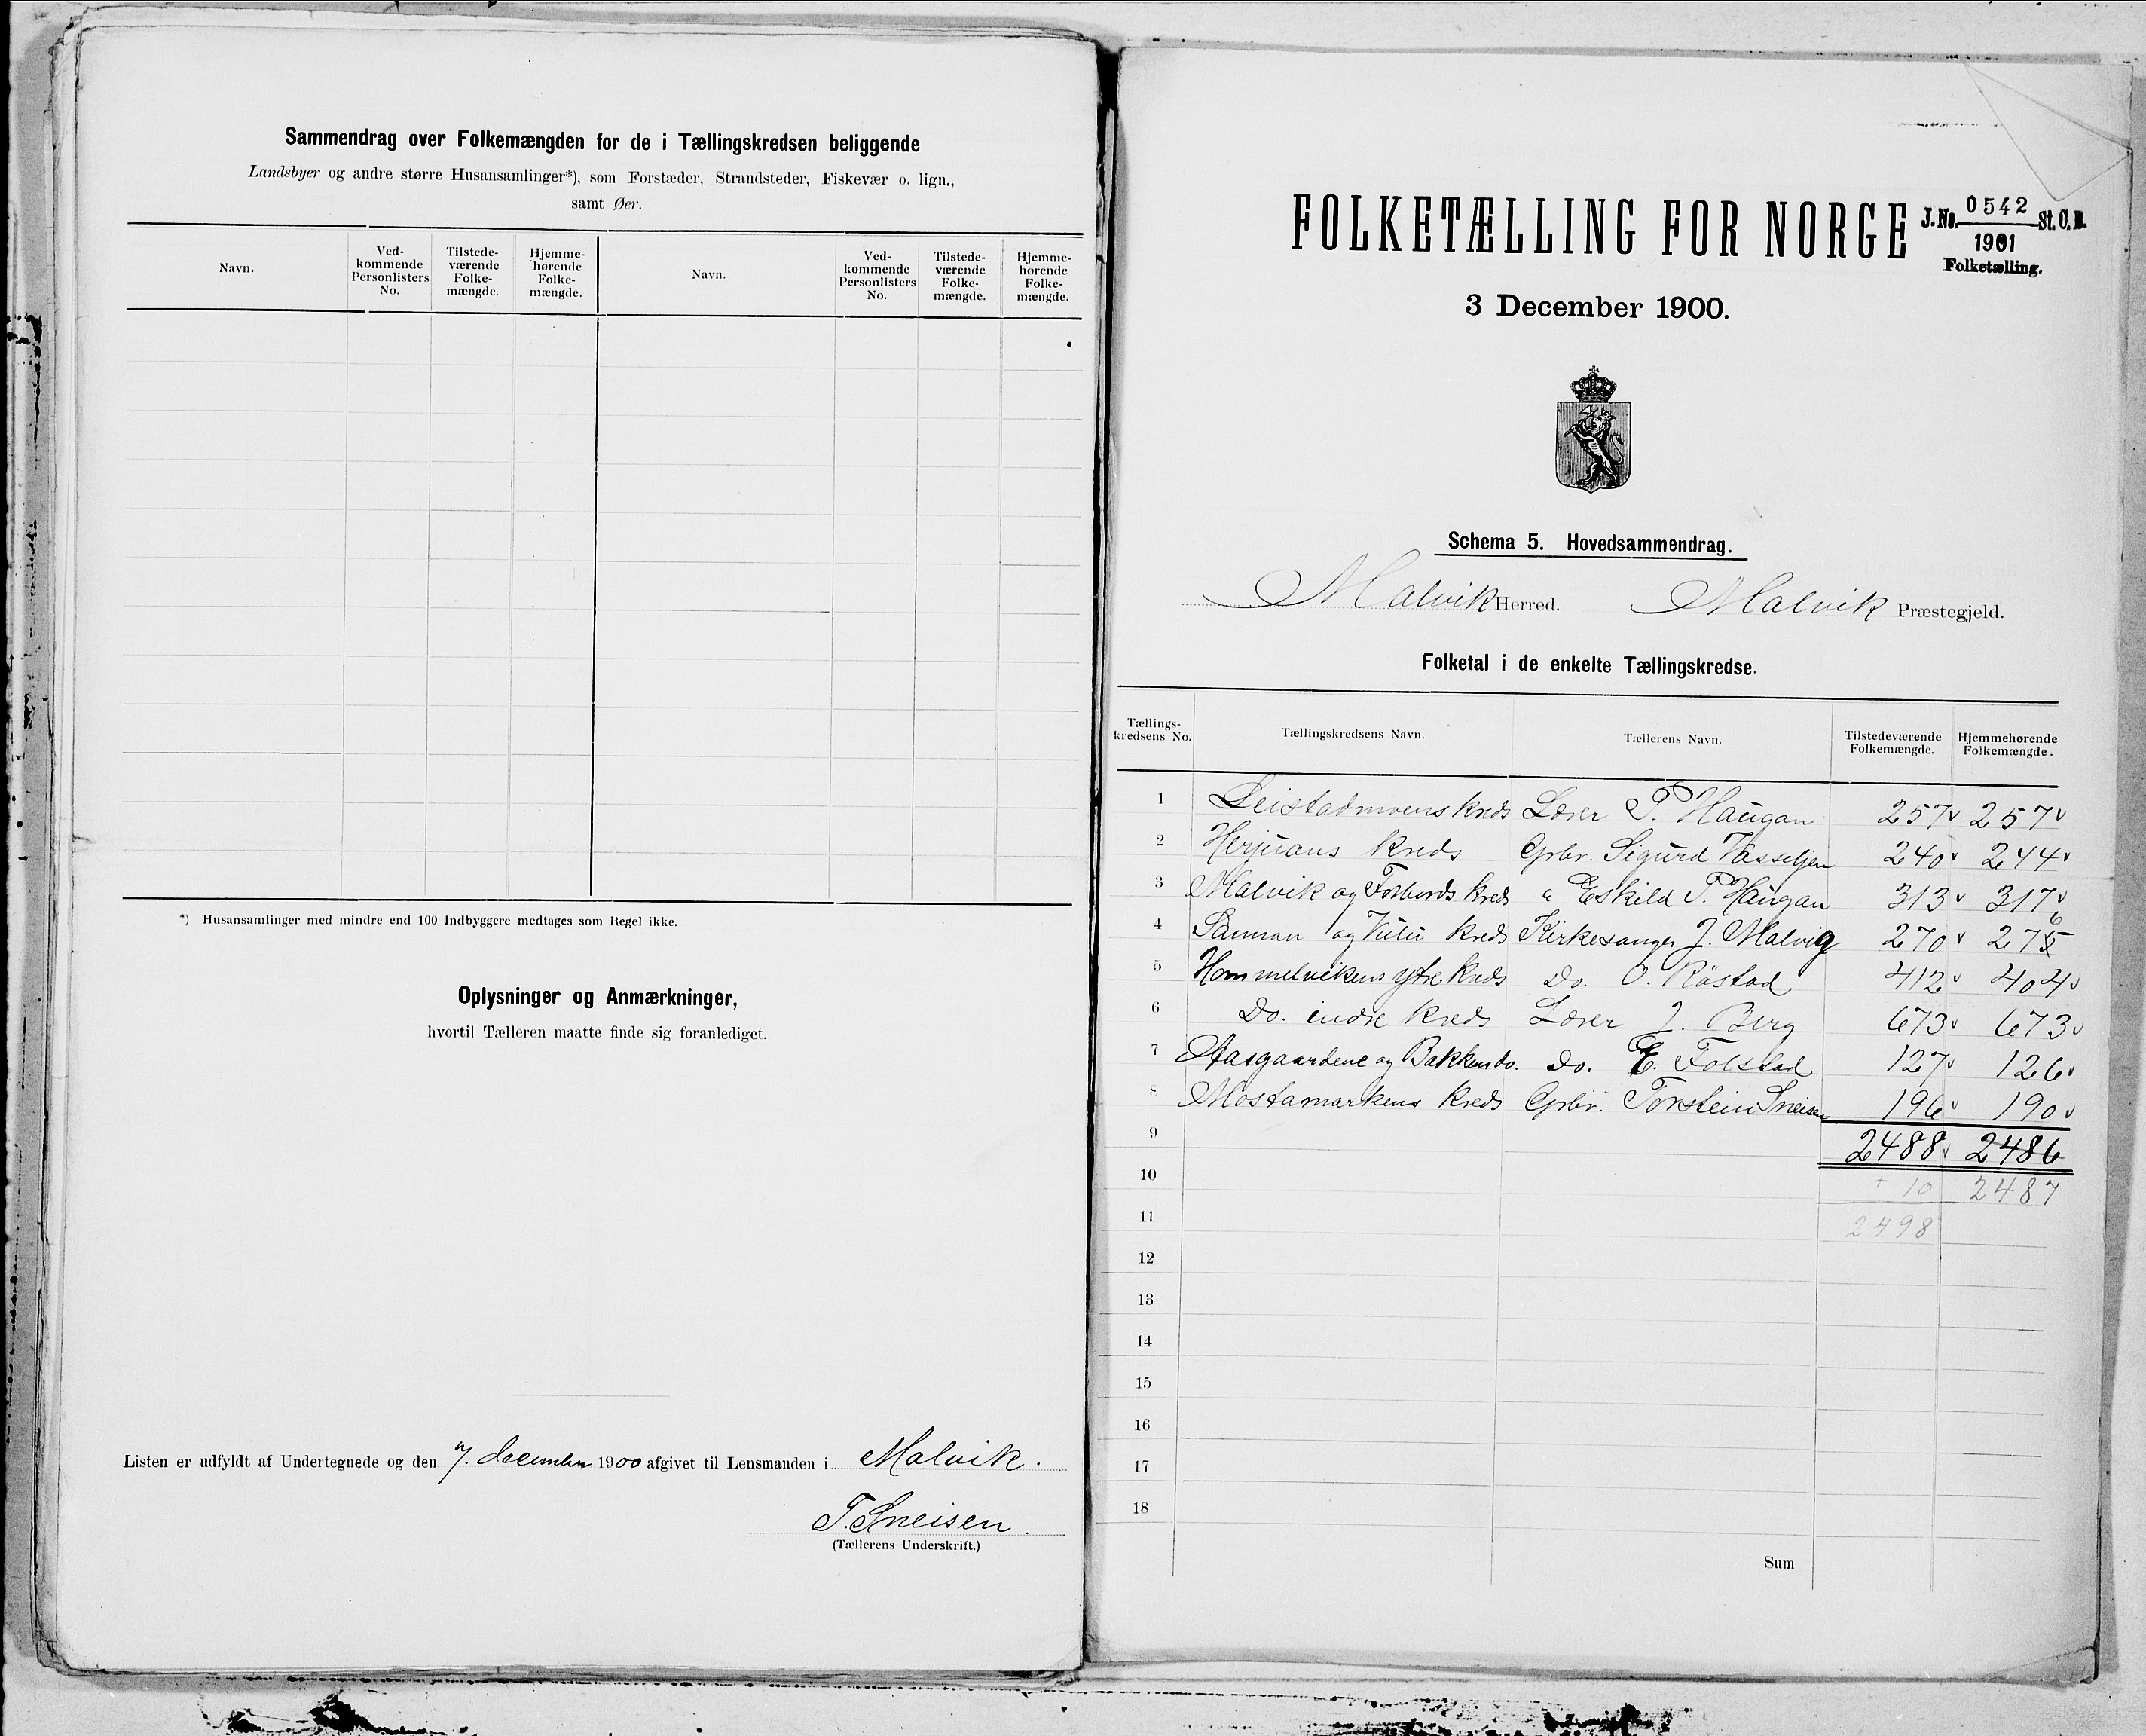 Sammendrag over Folkemængden for de i Tællingskredsen beliggende
Landsbyer og andre større Husansamlinger*), som Forstæder, Strandsteder, Fiskevær o. lign.,
samt Øer.
Navn. Ved-kommende Personlisters No. Tilstede-værende Folke-mængde. Hjemme-hørende Folke-mængde. Navn. Ved-kommende Personlisters No. Tilstede-værende Folke-mængde. Hjemme-hørende Folke-mængde.
*) Husansamlinger med mindre end 100 Indbyggere medtages som Regel ikke.
Oplysninger og Anmærkninger,
hvortil Tælleren maatte finde sig foranlediget.
Listen er udfyldt af Undertegnede og den 7. december 1900 afgivet til Lensmanden i Malvik.
T. Sneisen.
(Tællerens Underskrift.)
FOLKETÆLLING FOR NORGE
J. No. 0542 St. C. B.
1901
Folketælling.
3 December 1900.
Schema 5. Hovedsammendrag.
Malvik Herred. Malvik Præstegjeld.
Folketal i de enkelte Tællingskredse.
Tællings-kredsens No. Tællingskredsens Navn. Tællerens Navn. Tilstedeværende Folkemængde. Hjemmehørende Folkemængde.
1 Leistadmoens kreds Lærer P. Haugan 257 257
2 kreds Gbr. Sigurd Vasseljen 240 244
3 Malvik og Forbords kreds " Eskild P. Haugan 313 317
4 og kreds Kirkesanger J. Malvig 270 275 6
5 Hommelvikens ytre kreds Do. O. Råstad 412 404
6 Do. indre kreds Lærer J. Berg 673 673
7 Aasgaardene og Bakken do. Do. E. Folstad 127 126
8 Mostamarkens kreds Gbr. Torstein Sneisen 196 190
9 2488 2486
10 + 10 2487
11 2498
12
13
14
15
16
17
18
Sum